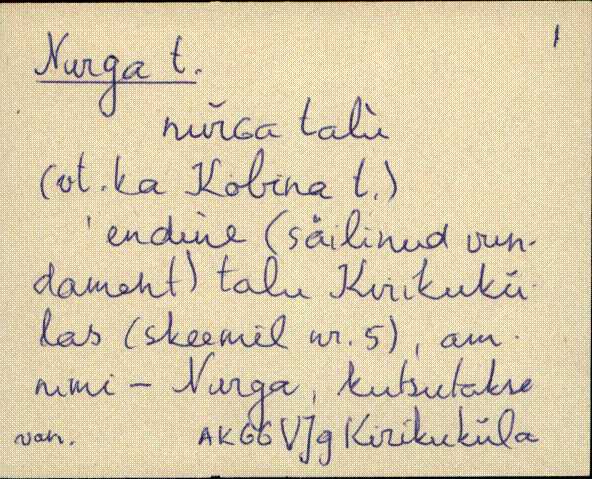 1
Nurga t.
nurGa talù
(vt. ka Kobina t.)
'endine (säilinud vun-
dament) talu Kirikukü-
las (skeemil nr. 5), am.
nimi - Nurga, kutsutakse
van. AKGG VJg Kirikuküla